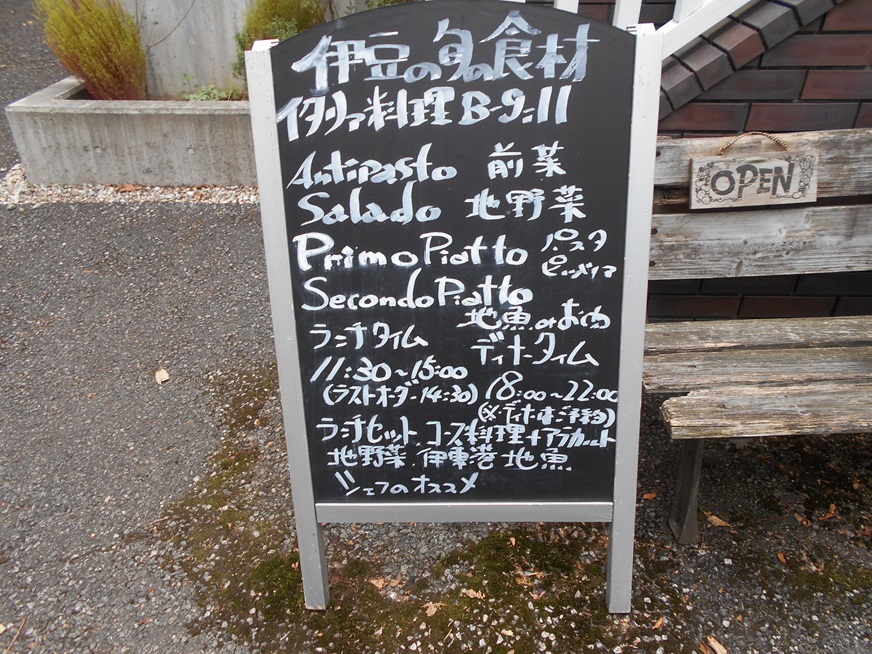 伊豆の旬の食材
イタリア料理 B-9:11
Antipasto 前菜
Salado 地野菜
Primo Piatto パスタ
Secondo Piatto
地魚orお肉
ランチタイム
ディナータイム
11:30~15:00
(ラストオーダー14:30)
18:00~22:00
(※ディナーはご予約)
ランチセット コース料理+アラカルト
地野菜 伊東港 地魚
シェフのオススメ
OPEN